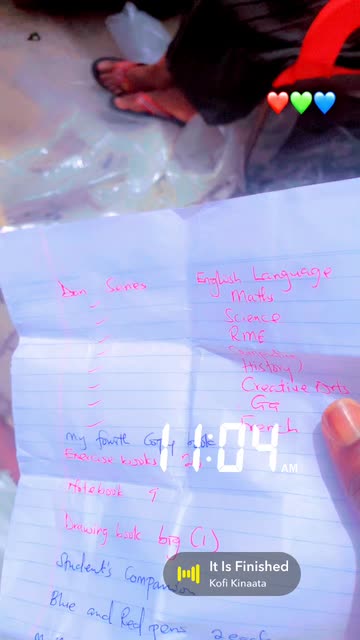 Dan Series English Language
Maths
Science
RME
Computing
History
Creative Arts
Ga
French
my fourth copy book
Exercise books 2
11:04 AM
Notebook 9
Drawing book big (1)
It Is Finished
Kofi Kinaata
Student's Companion
Blue and Red pens 2 each